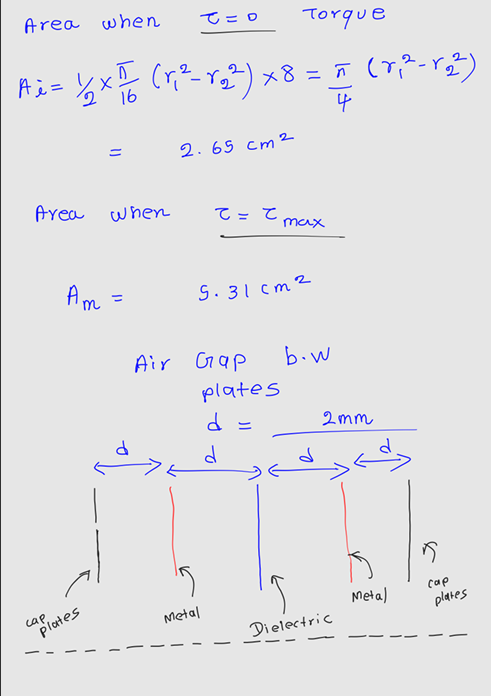 Area when τ = 0 Torque
Ai = 1/2 × π/16 (r₁² - r₂²) × 8 = π/4 (r₁² - r₂²)
= 2.65 cm²
Area when τ = τ max
Am = 5.31 cm²
Air Gap b.w
plates
d = 2mm
d d d d
cap plates
Metal
Dielectric
Metal
cap plates